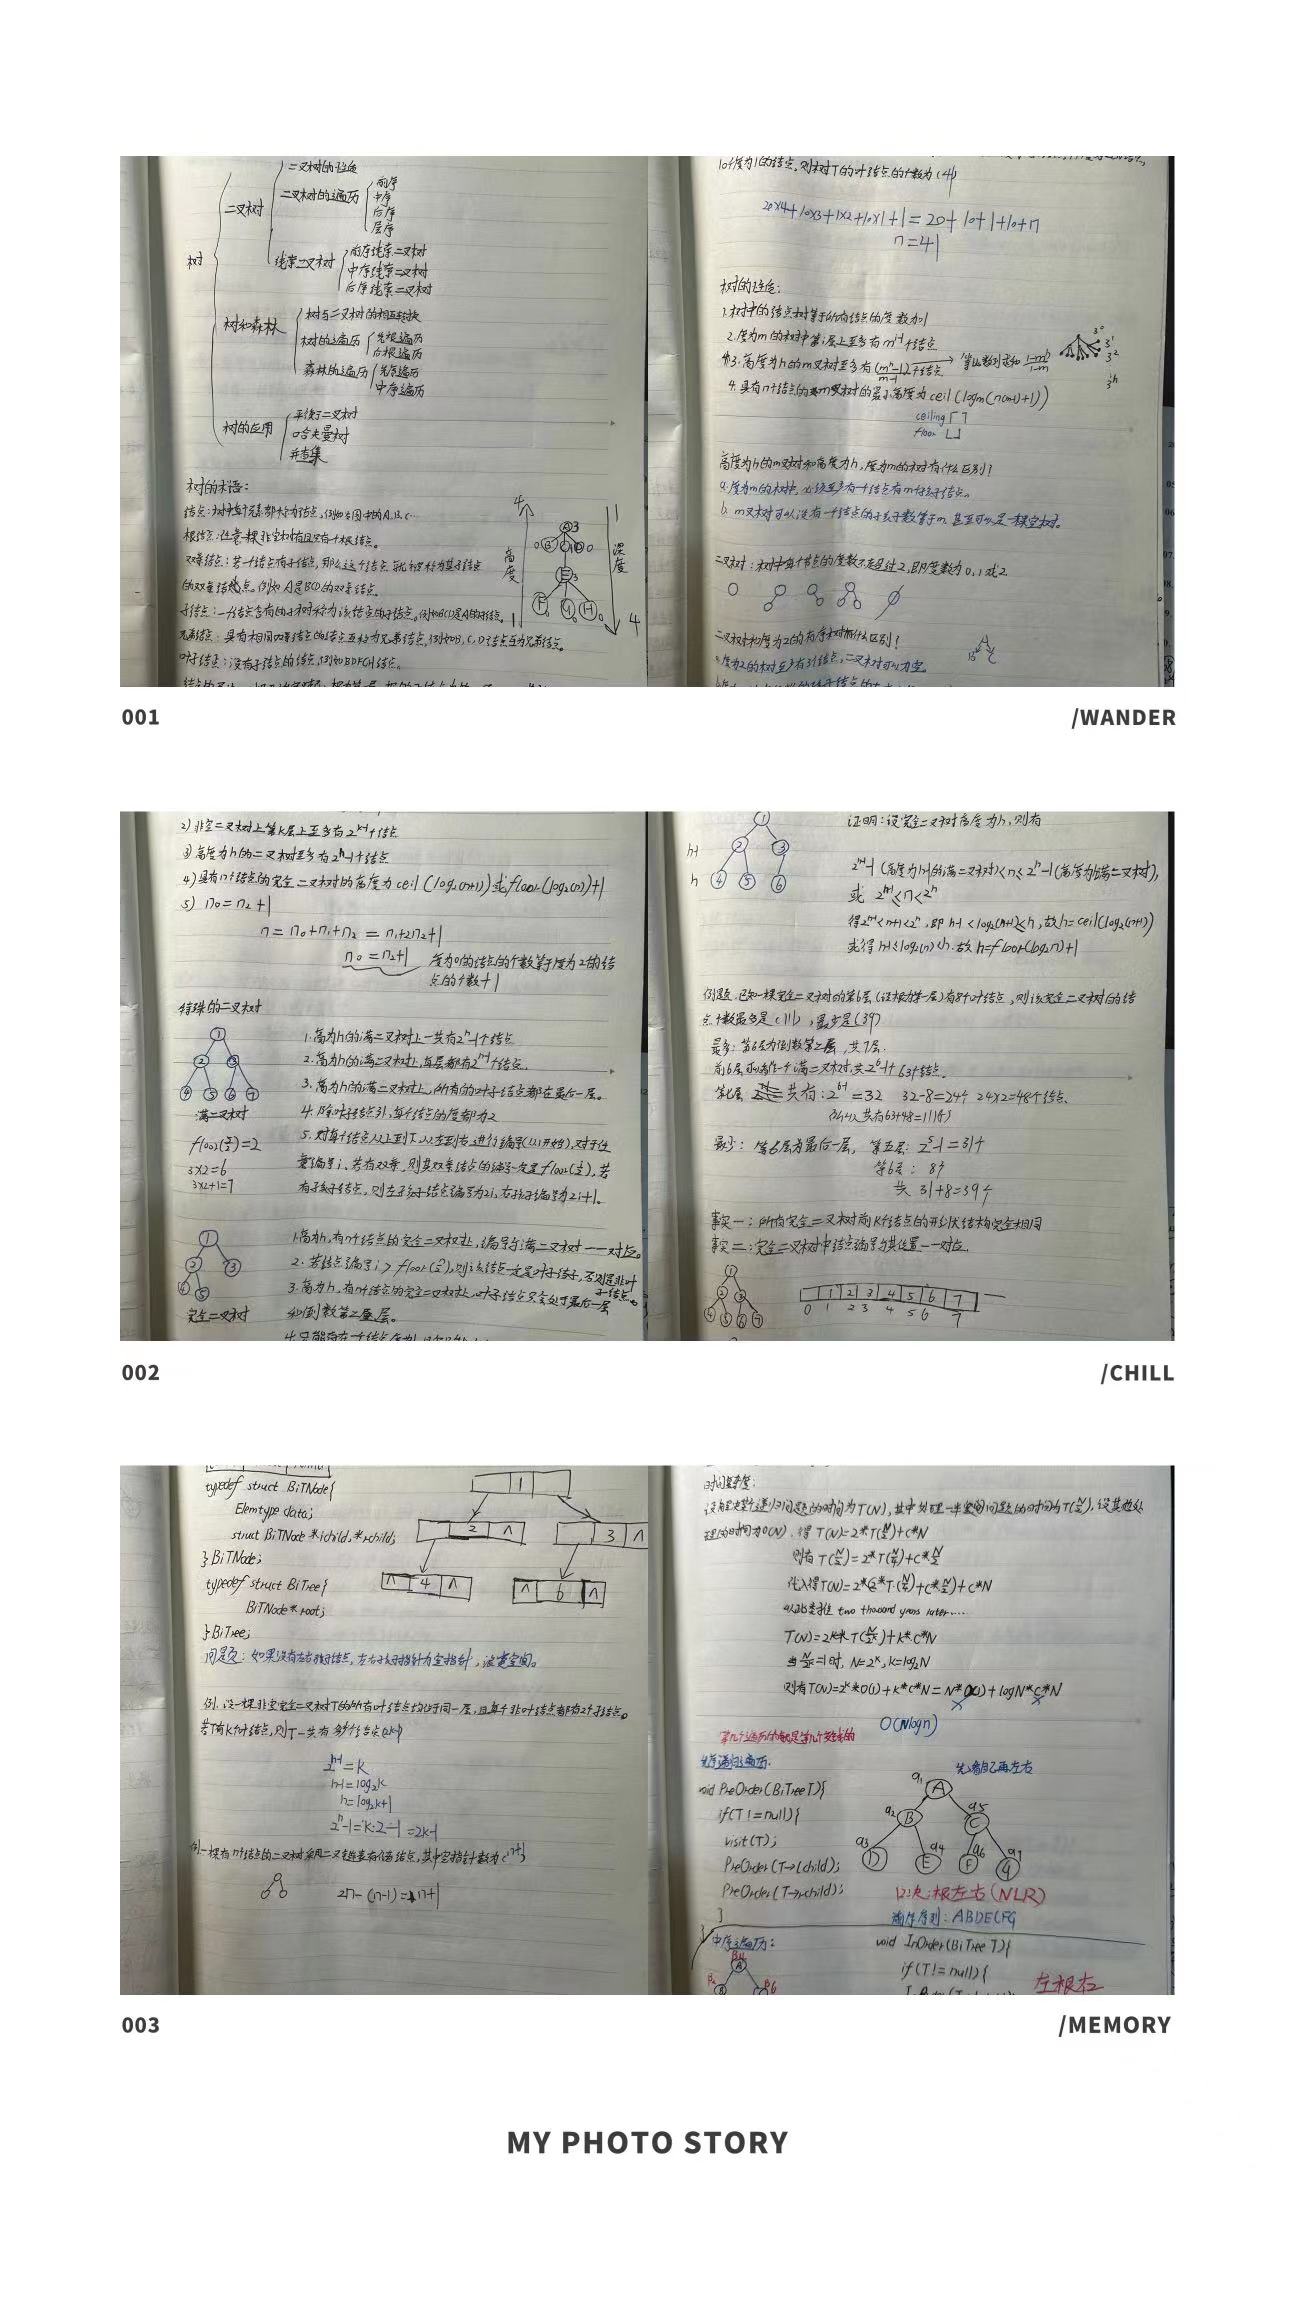 二叉树的性质
二叉树
二叉树的遍历
前序
中序
后序
层序
线索二叉树
前序线索二叉树
中序线索二叉树
后序线索二叉树
树
树和森林
树与二叉树的相互转换
树的遍历
先根遍历
后根遍历
森林的遍历
先序遍历
中序遍历
树的应用
平衡二叉树
哈夫曼树
并查集
树的术语:
根结点:任意一棵非空树有且只有一个根结点。
双亲结点:若一个结点有子结点,那么这个结点就被称为其子结点
的双亲结点。例如A是BCD的双亲结点。
兄弟结点:具有相同双亲结点的结点互称为兄弟结点,例如B,C,D结点互为兄弟结点。
叶子结点:没有子结点的结点,
高度
深度
4
1
1
4
10个度为1的结点,则树T的叶结点的个数为(41)
20×4+10×3+1×2+10×1+1=20+10+1+10+n
n=41
树的性质:
1.树中的结点树等于所有结点的度数加1
2.度为m的树中第i层上至多有 m^i-1 个结点
3.高度为h的m叉树至多有(m^h-1)/(m-1)个结点
等比数列求和
4.具有n个结点的m叉树的最小高度为ceil(logm(n(m-1)+1))
ceiling ⌈ ⌉
floor ⌊ ⌋
高度为h的m叉树和高度为h,度为m的树有什么区别?
a.度为m的树中,必须至少有一个结点有m个孩子结点。
b. m叉树可以没有一个结点的孩子数等于m,甚至可以是一棵空树。
二叉树:树中每个节点的度数不超过2,即度数为0,1或2
二叉树和度为2的有序树有什么区别?
a.度为2的树至少有3个结点,二叉树可以为空。
001
/WANDER
2)非空二叉树上第k层上至多有2^k-1个结点
3)高度为h的二叉树至多有2^h-1个结点
4)具有n个结点的完全二叉树的高度为ceil(log2(n+1))或floor(log2(n))+1
5) n0=n2+1
n=n0+n1+n2=n1+2n2+1
n0=n2+1
度为0的结点的个数等于度为2的结
点的个数+1
特殊的二叉树
1.高为h的满二叉树上一共有2^h-1个结点
2.高为h的满二叉树上,每层都有2^h-1个结点。
3.高为h的满二叉树上,所有的叶子结点都在最后一层。
4.除叶子结点外,每个结点的度都为2
5.对每个结点从上到下,从左到右进行编号(从1开始),对于任
意编号i,若有双亲,则其双亲结点的编号一定是floor(i/2),若
有孩子结点,则左孩子结点编号为2i,右孩子编号为2i+1。
满二叉树
floor(5/2)=2
3×2=6
3×2+1=7
1.高为h,有n个结点的完全二叉树上,编号与满二叉树一一对应。
2.若结点编号i>floor(n/2),则该结点一定是叶子结点,否则是非叶
子结点。
3.高为h,有n个结点的完全二叉树上,叶子结点只会处于最后一层
和倒数第二层。
完全二叉树
证明:设完全二叉树高度为h,则有
2^h-1-1(高度为h-1的满二叉树)<n≤2^h-1(高度为h满二叉树),
或 2^h-1≤n<2^h
得2^h-1<n+1≤2^h,即h-1<log2(n+1)≤h,故h=ceil(log2(n+1))
或得h-1≤log2(n)<h.故h=floor(log2n)+1
例题.已知一棵完全二叉树的第6层(设根为第一层)有8个叶结点,则该完全二叉树的结
点个数最多是(111),最少是(39)
最多:第6层为倒数第二层,共7层.
前6层可看作一个满二叉树,共2^6-1个63个结点.
第6层 共有:2^6-1=32 32-8=24个 24×2=48个结点.
所以共有63+48=111个
最少:第6层为最后一层,第五层:2^5-1=31个
第6层:8个
共 31+8=39个
事实一:所有完全二叉树前k个结点的形状结构完全相同
事实二:完全二叉树中结点编号与其位置一一对应.
1 2 3 4 5 6 7
0 1 2 3 4 5 6 7
002
/CHILL
typedef struct BiTNode{
Elemtype data;
struct BiTNode *lchild,*rchild;
}BiTNode;
typedef struct BiTree{
BiTNode*root;
}BiTree;
1
2 ∧
3 ∧
∧ 4 ∧
∧ 6 ∧
问题:如果没有左右孩子结点,左右孩子指针为空指针,浪费空间。
例.设一棵非空完全二叉树T的所有叶结点均位于同一层,且每个非叶结点都有2个子结点。
若T有k个叶结点,则T一共有多少个结点(2k-1)
2^h-1=k
h-1=log2k
h=log2k+1
2^h-1=k·2-1=2k-1
例.一棵有n个结点的二叉树采用二叉链表存储结点,其中空指针数为(n+1)
2n-(n-1)=n+1
时间复杂度:
设解决某个递归问题的时间为T(N),其中处理一半空间问题的时间为T(N/2),设其他处
理的时间为O(N).得 T(N)=2*T(N/2)+C*N
则有 T(N/2)=2*T(N/4)+C*N/2
代入得T(N)=2*(2*T(N/4)+C*N/2)+C*N
以此类推 two thousand years later....
T(N)=2^k*T(N/2^k)+k*C*N
当N/2^k=1时, N=2^k, k=log2N
则有T(N)=2^k*O(1)+k*C*N=N*O(1)+logN*C*N
O(Nlogn)
先序递归遍历:
先看自己再左右
void PreOrder(BiTree T){
if(T!=null){
visit(T);
PreOrder(T→lchild);
PreOrder(T→rchild);
}
口决:根左右(NLR)
前序序列:ABDECFG
中序遍历:
void InOrder(BiTree T){
if(T!=null){
左根右
003
/MEMORY
MY PHOTO STORY